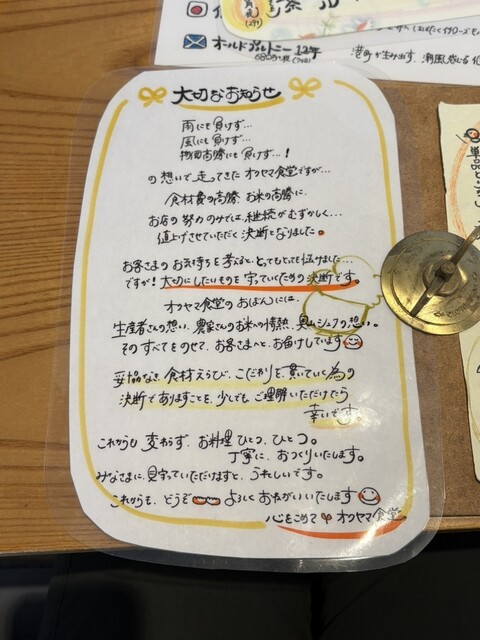 オールドプルトニー 12年
大切なお知らせ
雨にも負けず…
風にも負けず…
物価高騰にも負けず…!
の想いで走ってきたオクヤマ食堂ですが…
食材費の高騰、お米の高騰に、
お店の努力のみでは、継続がむずかしく…
値上げさせていただく決断となりました。
お客さまのお気持ちを考えると、とってもとっても悩みました…
ですが!大切にしたいものを守っていくための決断です。
オクヤマ食堂のおぼんには、
生産者さんの想い、農家さんのお米への情熱、奥山シェフの想い。
そのすべてをのせて、お客さまへと、お届けしています
妥協なき、食材えらび、こだわりを貫いていく為の
決断でありますことを、少しでも、ご理解いただけたら
幸いです。
これからも変わらず、お料理ひとつ、ひとつ。
丁寧に、おつくりいたします。
みなさまに、見守っていただけますと、うれしいです。
これからも、どうぞ よろしくおねがいいたします
心をこめて オクヤマ食堂